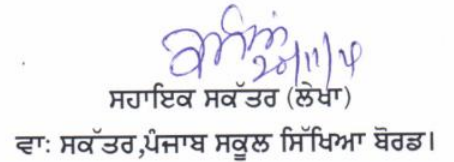 ਸਹਾਇਕ ਸਕੱਤਰ (ਲੇਖਾ)
ਵਾ: ਸਕੱਤਰ,ਪੰਜਾਬ ਸਕੂਲ ਸਿੱਖਿਆ ਬੋਰਡ।